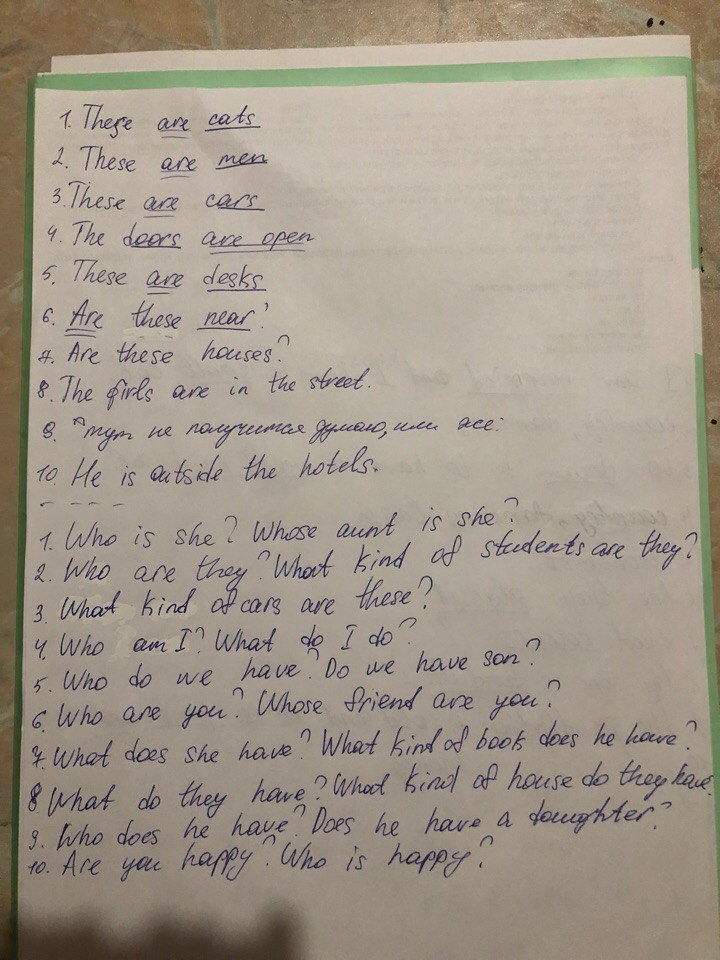 1. These are cats
2. These are men
3. These are cars
4. The doors are open
5. These are desks
6. Are these near?
7. Are these houses?
8. The girls are in the street.
9. тут не получится думаю, или все.
10. He is outside the hotels.
1. Who is she? Whose aunt is she?
2. Who are they? What kind of students are they?
3. What kind of cars are these?
4. Who am I? What do I do?
5. Who do we have? Do we have son?
6. Who are you? Whose friend are you?
7. What does she have? What kind of book does he have?
8. What do they have? What kind of house do they have.
9. Who does he have? Does he have a doughter?
10. Are you happy? Who is happy?